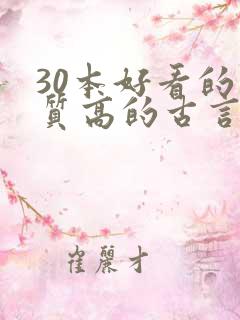 30本好看的
質高的古言
崔麗才